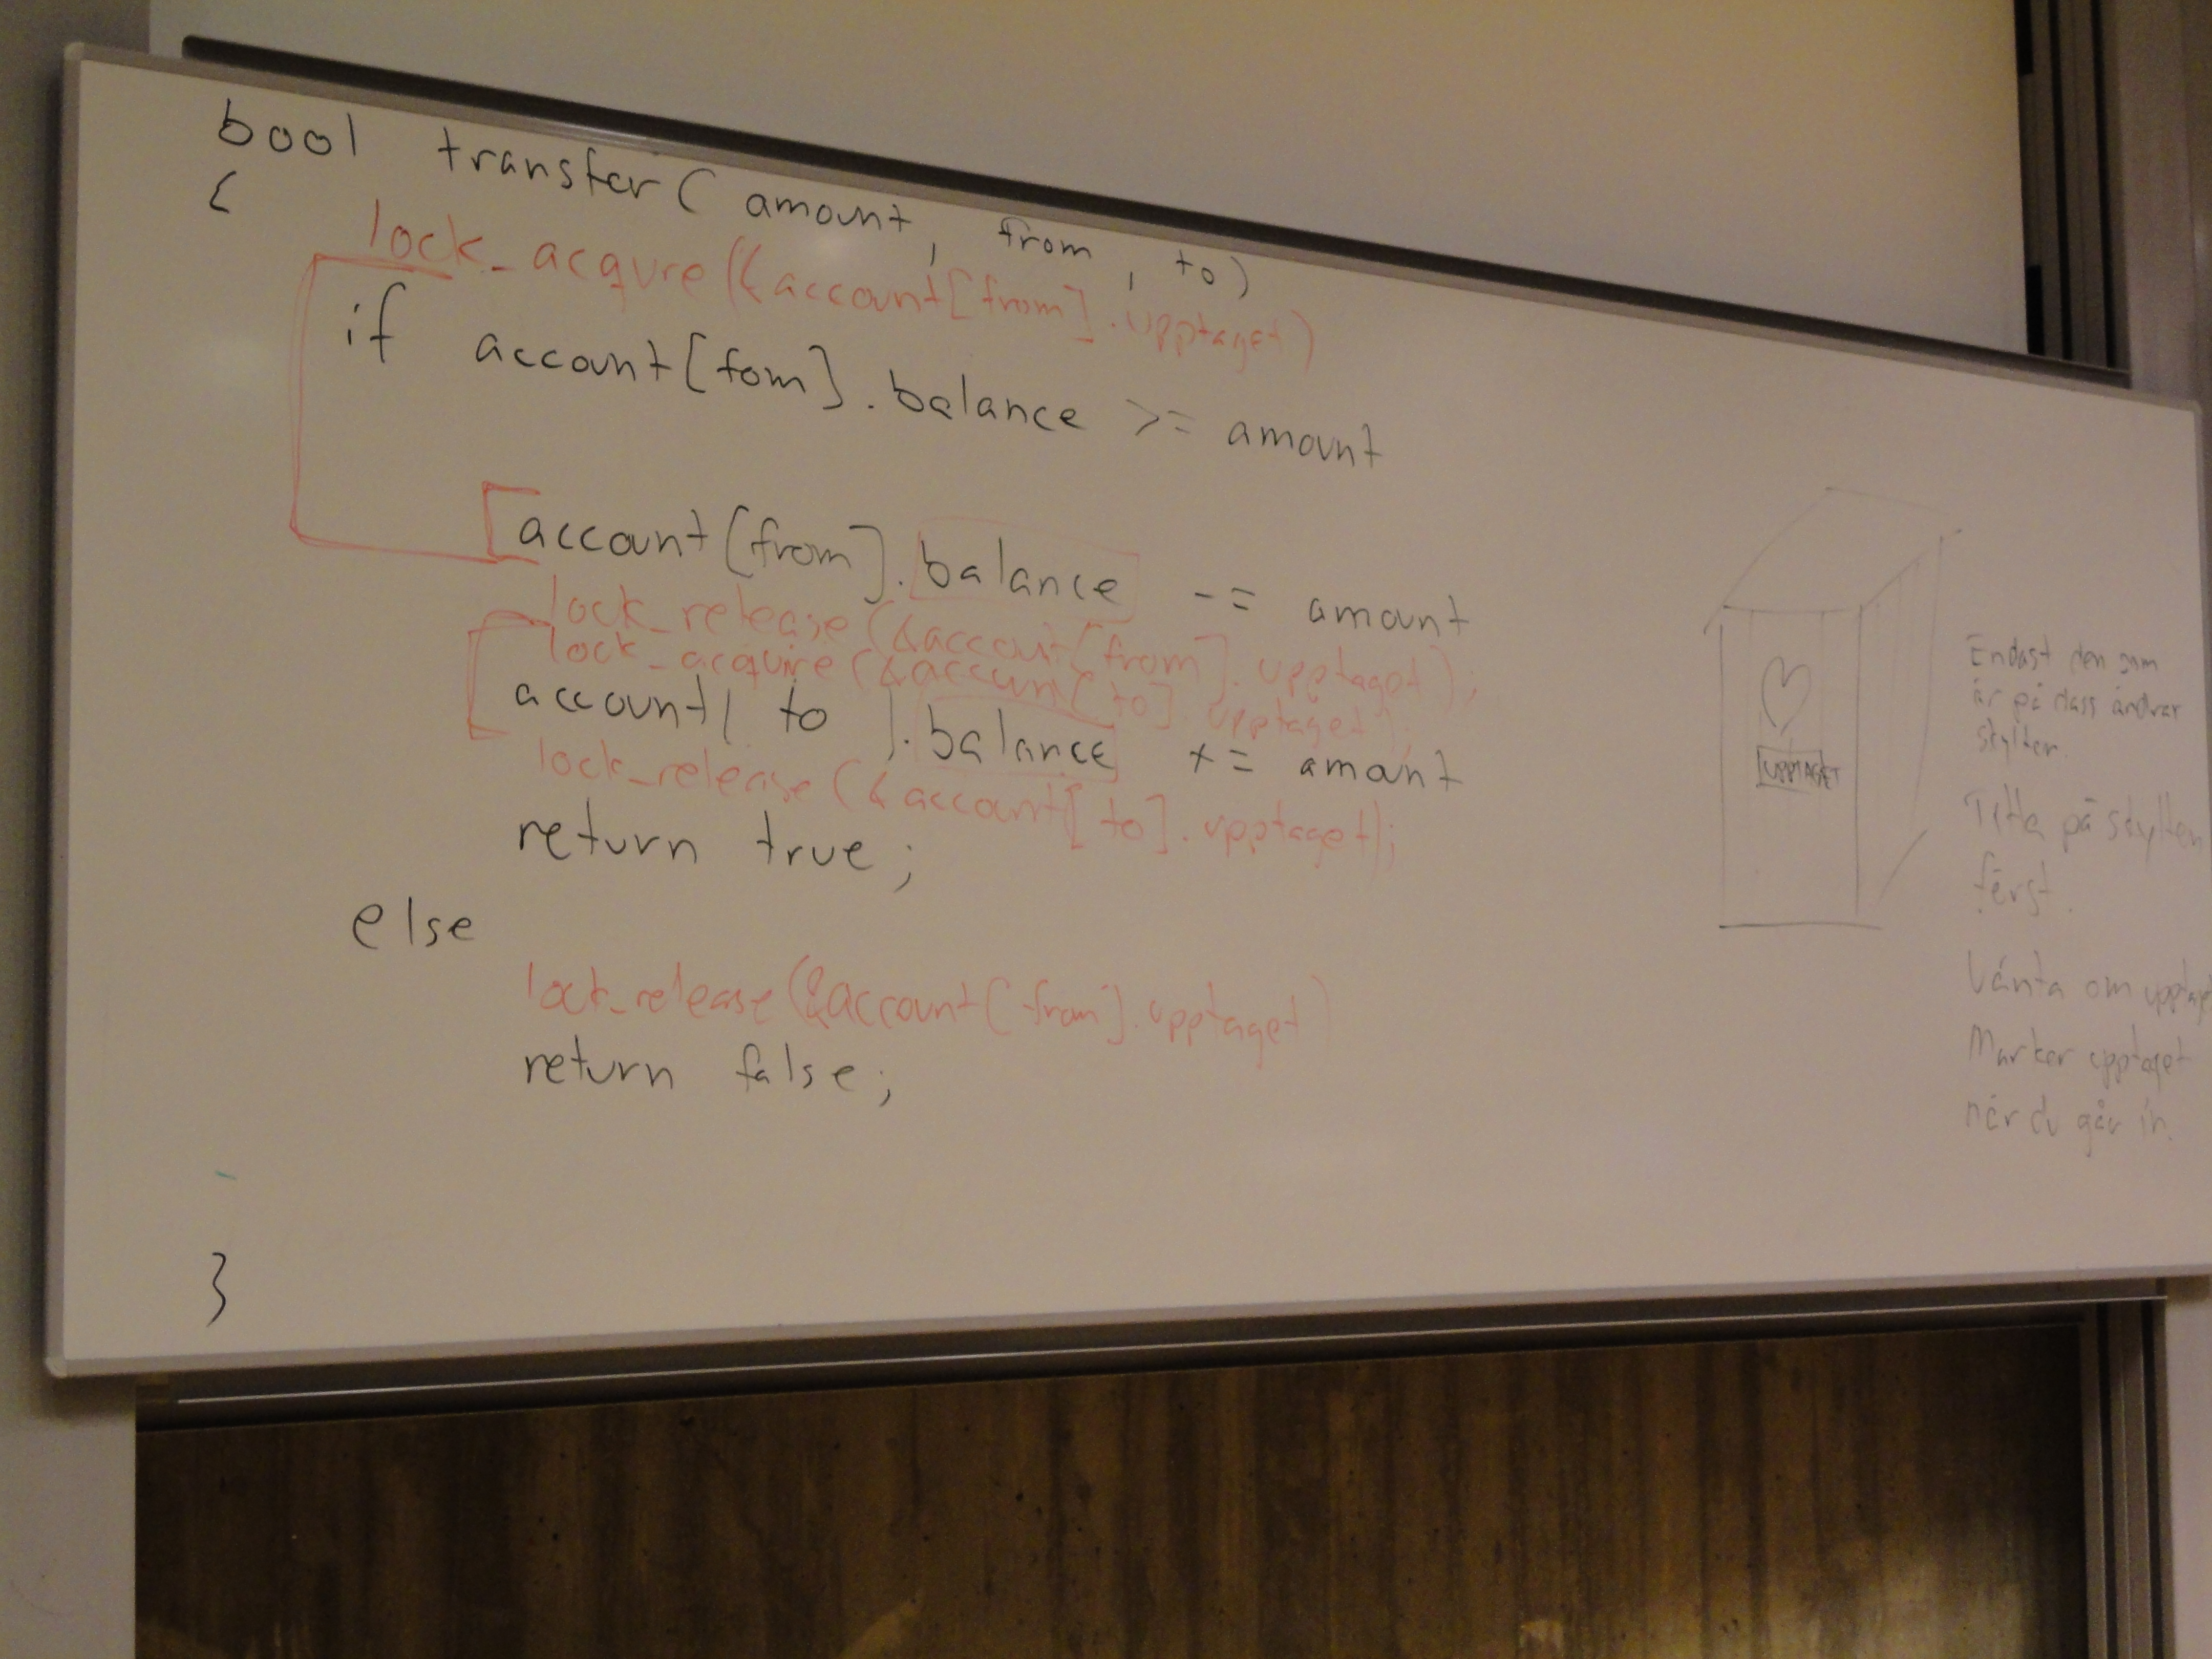 bool transfer( amount, from, to)
{
lock_acqure(&account[from].upptaget)
if account[fom].balance >= amount
account[from].balance -= amount
lock_release(&account[from].upptaget);
lock_acquire(&account[to].upptaget);
account[ to ].balance += amount
lock_release(&account[to].upptaget);
return true;
else
lock_release(&account[from].upptaget)
return false;
}
UPPTAGET
Endast den som
är på dass ändrar
skylten.
Titta på skylten
först.
Vänta om upptaget
Marker upptaget
när du går in.